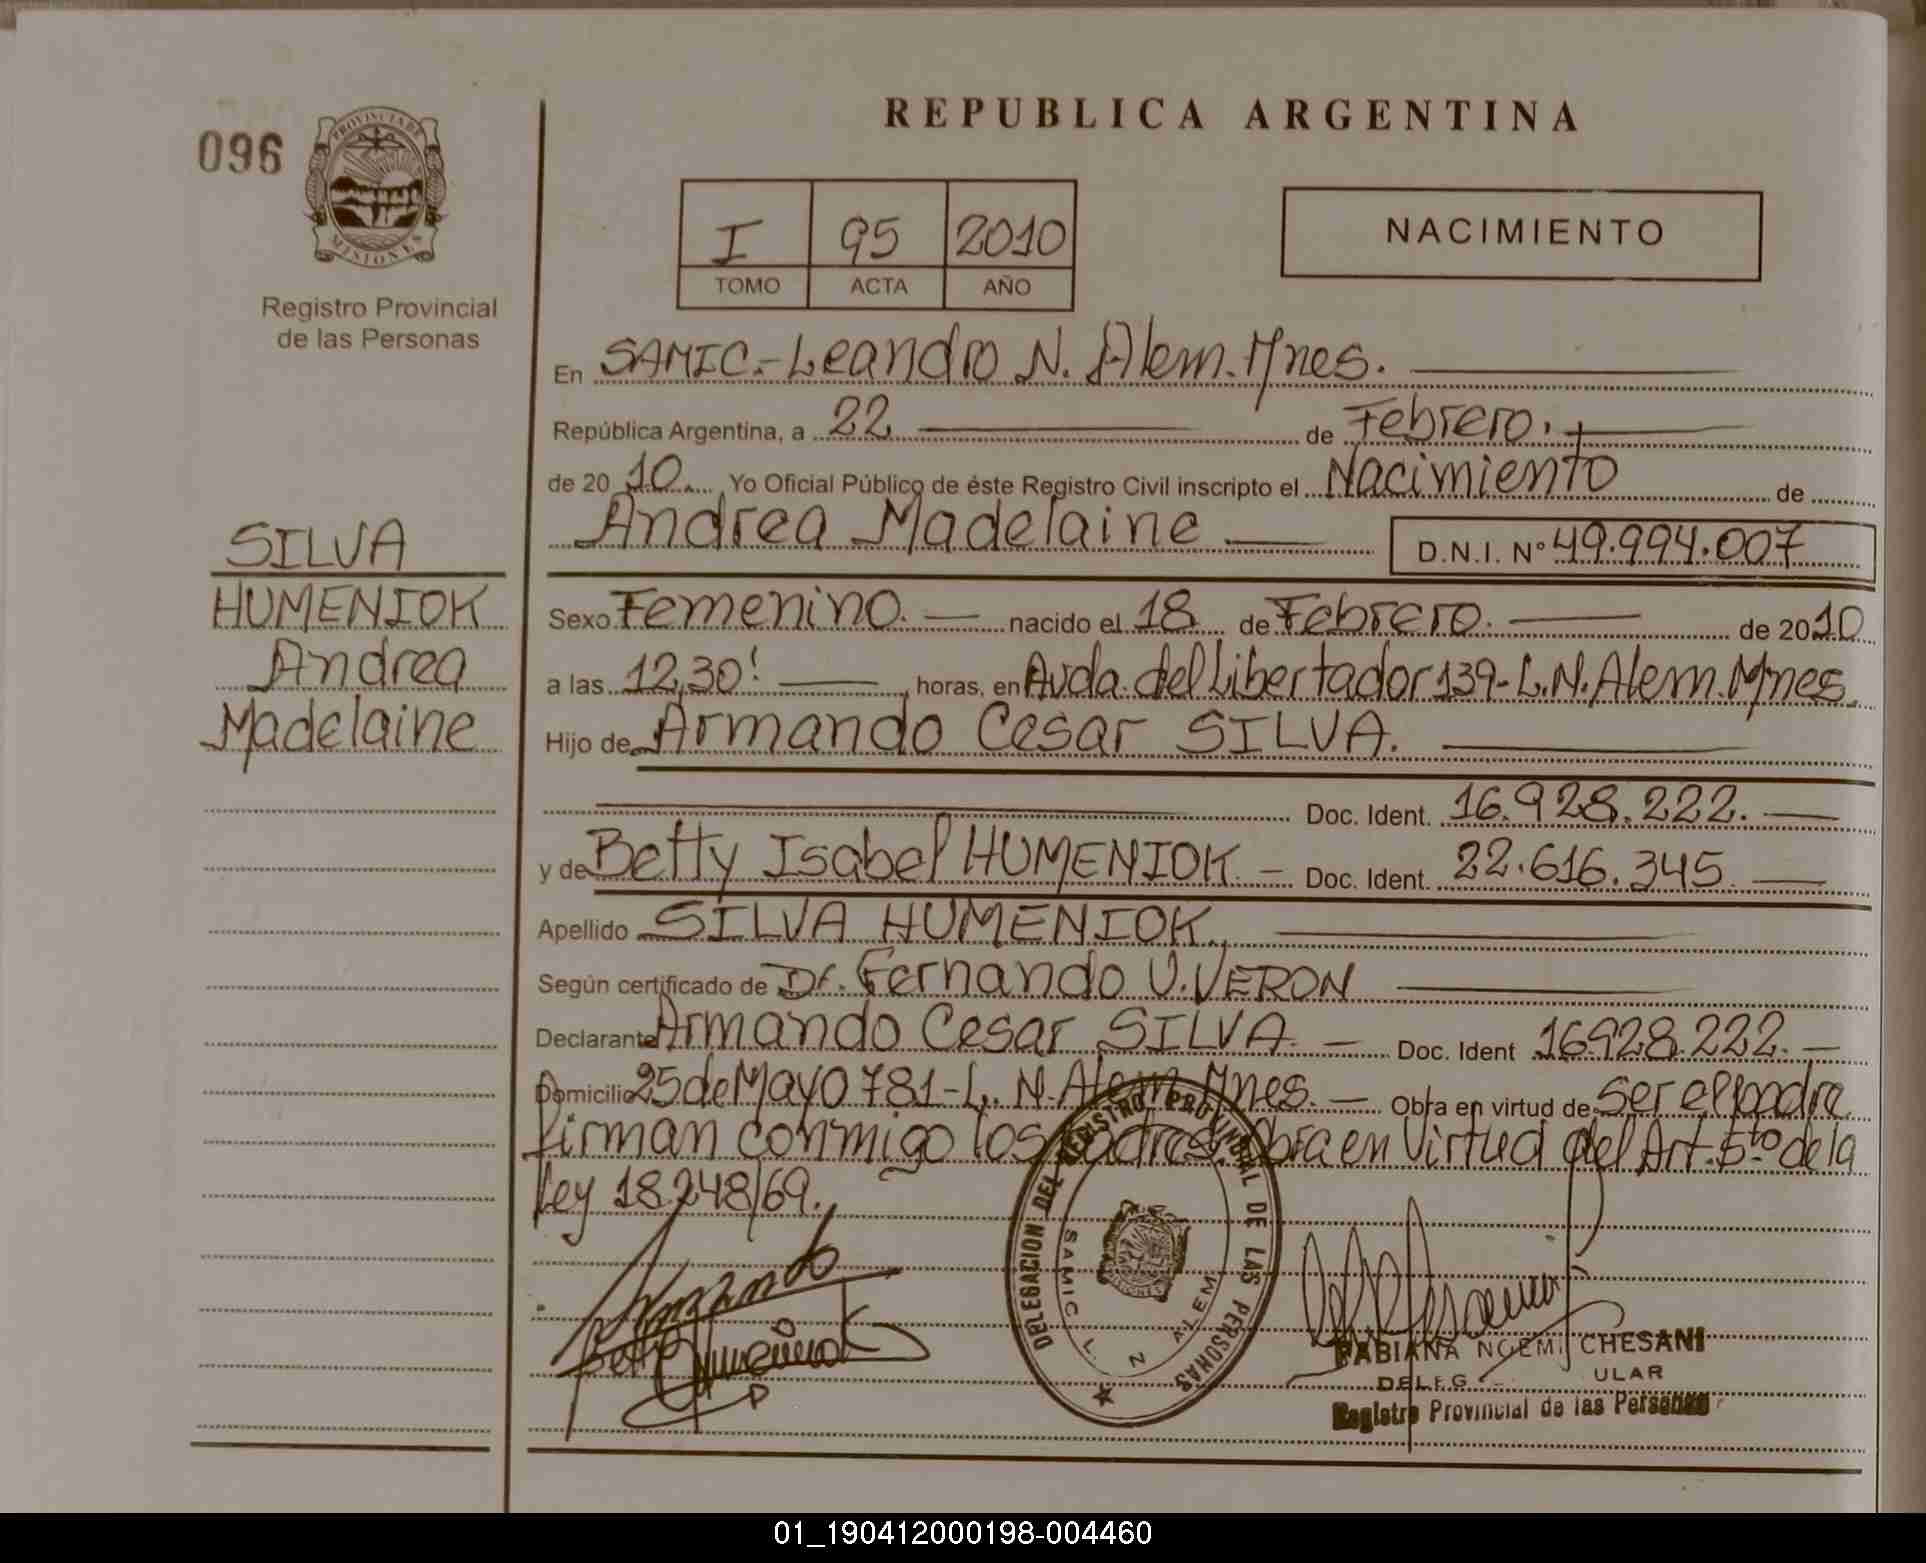 REPUBLICA ARGENTINA
096
PROVINCIA DE
MISIONES
Registro Provincial
de las Personas
I 95 2010
TOMO ACTA AÑO
NACIMIENTO
En SAMIC.-Leandro N. Alem. Mnes.
República Argentina, a 22 de Febrero.
de 2010. Yo Oficial Público de éste Registro Civil inscripto el Nacimiento de
Andrea Madelaine D.N.I. Nº 49.994.007
SILVA
HUMENIOK
Andrea
Madelaine
Sexo Femenino. nacido el 18 de Febrero. de 2010
a las 12,30' horas, en Avda. del Libertador 139-L.N. Alem. Mnes.
Hijo de Armando Cesar SILVA.
Doc. Ident. 16.928.222.
y de Betty Isabel HUMENIOK. Doc. Ident. 22.616.345
Apellido SILVA HUMENIOK.
Según certificado de Dr. Fernando V. VERON
Declarante Armando Cesar SILVA. Doc. Ident 16928.222.
Domicilio 25 de Mayo 781-L. N. Alem Mnes. Obra en virtud de ser el padre
firman conmigo los padres. Obra en virtud del Art. 5to de la
Ley 18.248/69.
DELEGACION DEL REGISTRO PROVINCIAL DE LAS PERSONAS
SAMIC L N ALEM
Armando
Betty Humeniok
FABIANA NOEMI CHESANI
DELEG ULAR
Registro Provincial de las Personas
01_190412000198-004460